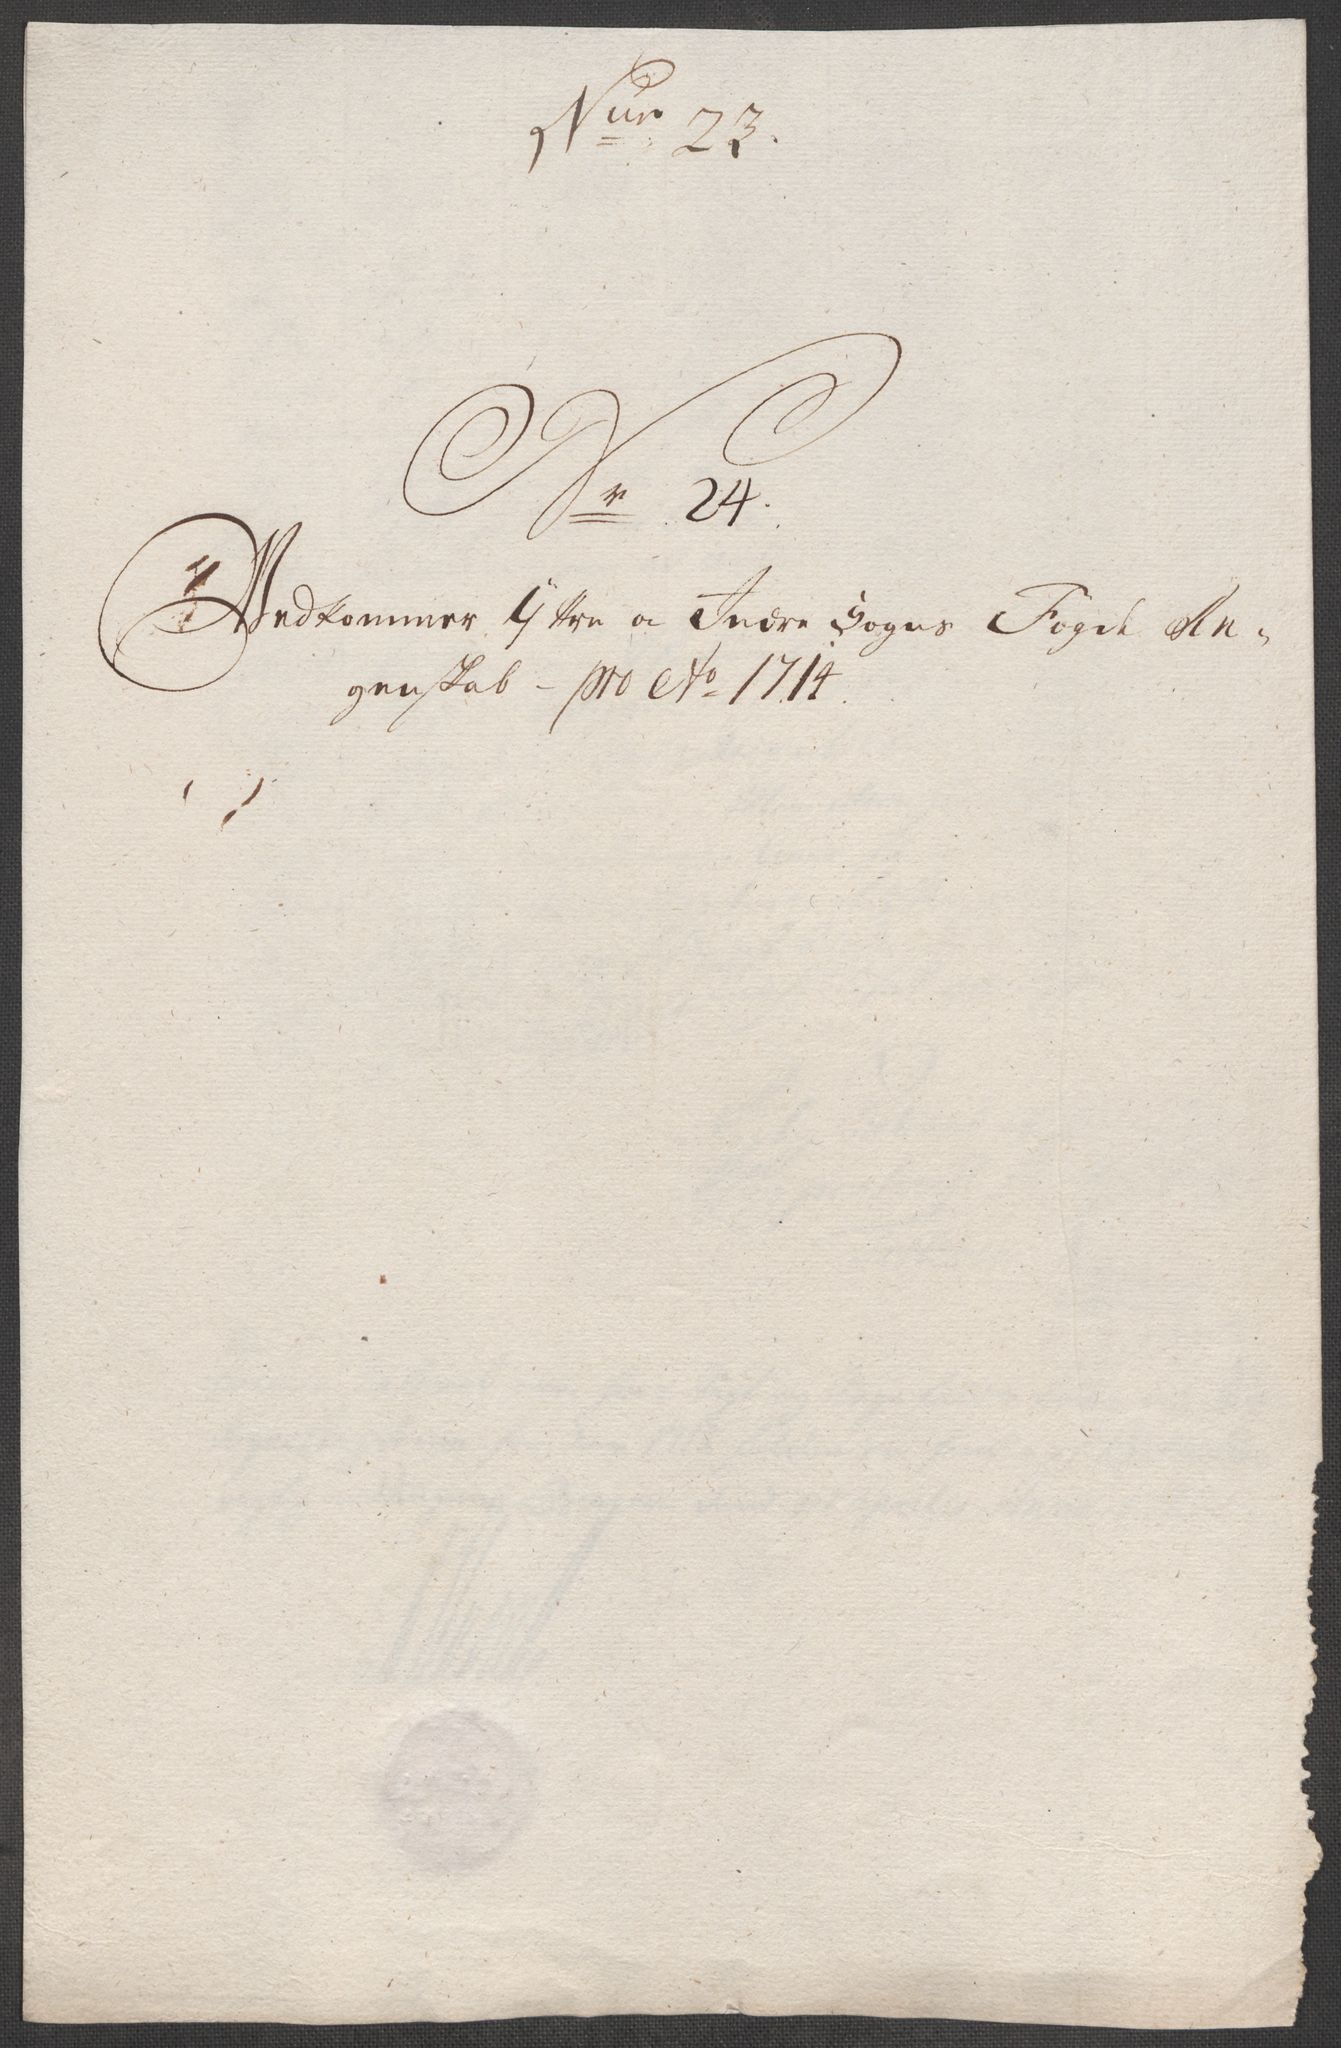 Nur 23.
Nr 24.
Vedkommer Ÿttre oc Indre Sogns Fogde Re-
genskab – pro Ao 1714